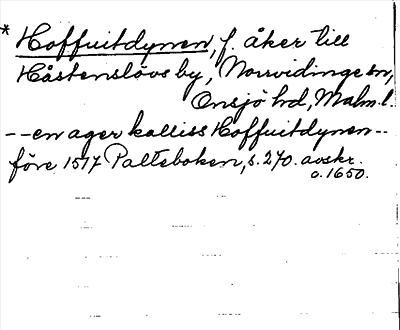 * Hoffuitdynen, f. åker till
Håstenslövs by, Norrvidinge sn,
Onsjö hd, Malm. l.
-- en ager kalliss Hoffuitdynen --
före 1577 Palteboken, s. 270. avskr.
o. 1650.